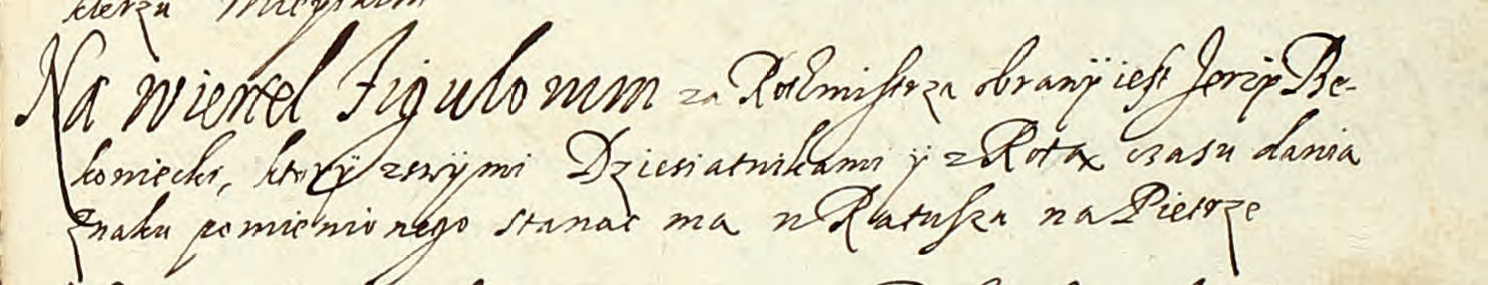 Na wiertel Figulorum za Rotmistrza obranÿ iest Jerzÿ Be-
koniecki, ktorÿ zswÿmi Dziesiatnikami ÿ z Rotą czasu dania
Znaku pomienionego stanac ma u Ratusza na Pietrze